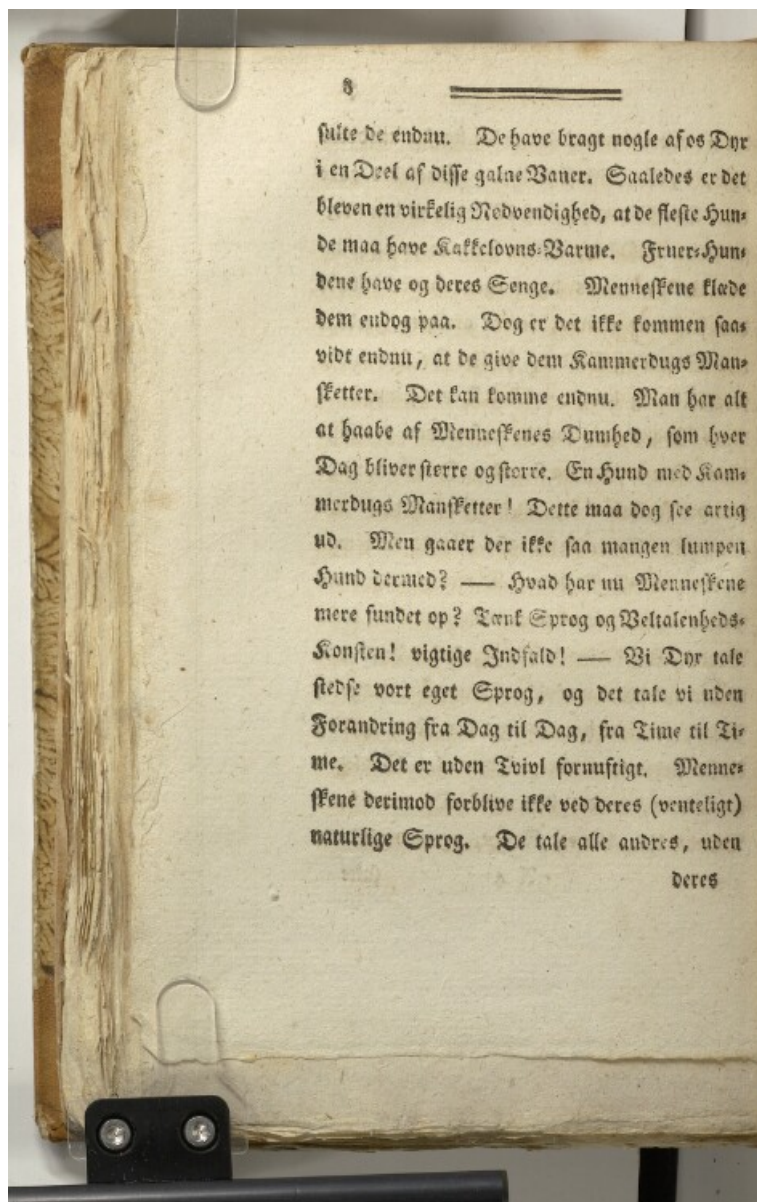 8
sulte de endnu. De have bragt nogle af os Dyr
i en Deel af disse galne Vaner. Saaledes er det
bleven en virkelig Nødvendighed, at de fleste Hun-
de maa have Kakkelovns-Varme. Fruer-Hun-
dene have og deres Senge. Menneskene klæde
dem endog paa. Dog er det ikke kommen saa-
vidt endnu, at de give dem Kammerdugs Man-
sketter. Det kan komme endnu. Man har alt
at haabe af Menneskenes Dumhed, som hver
Dag bliver større og større. En Hund med Kam-
merdugs Mansketter! Dette maa dog see artig
ud. Men gaaer der ikke saa mangen lumpen
Hund dermed? — Hvad har nu Menneskene
mere fundet op? Tænk Sprog og Veltalenheds-
Konsten! vigtige Indfald! — Vi Dyr tale
stedse vort eget Sprog, og det tale vi uden
Forandring fra Dag til Dag, fra Time til Ti-
me. Det er uden Tvivl fornuftigt. Menne-
skene derimod forblive ikke ved deres (venteligt)
naturlige Sprog. De tale alle andres, uden
deres